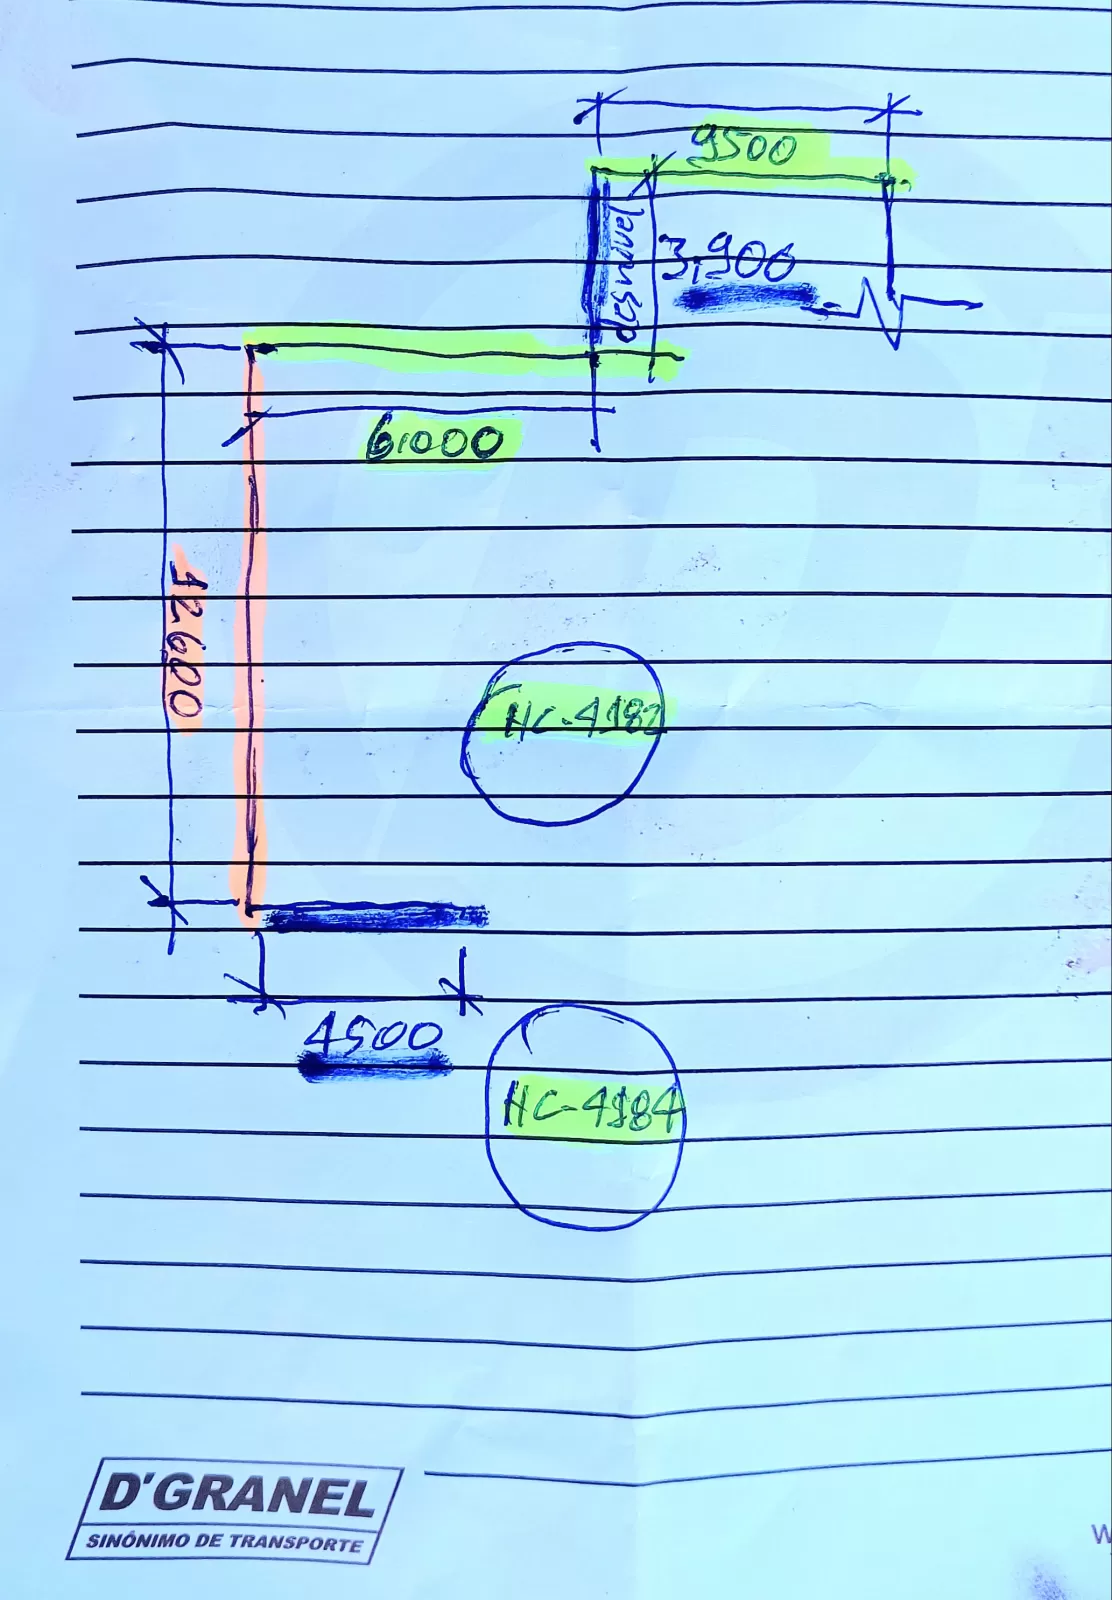 9500
desnivel
3,900
6.000
12600
HC-4182
4500
HC-4184
D'GRANEL
SINÔNIMO DE TRANSPORTE
W